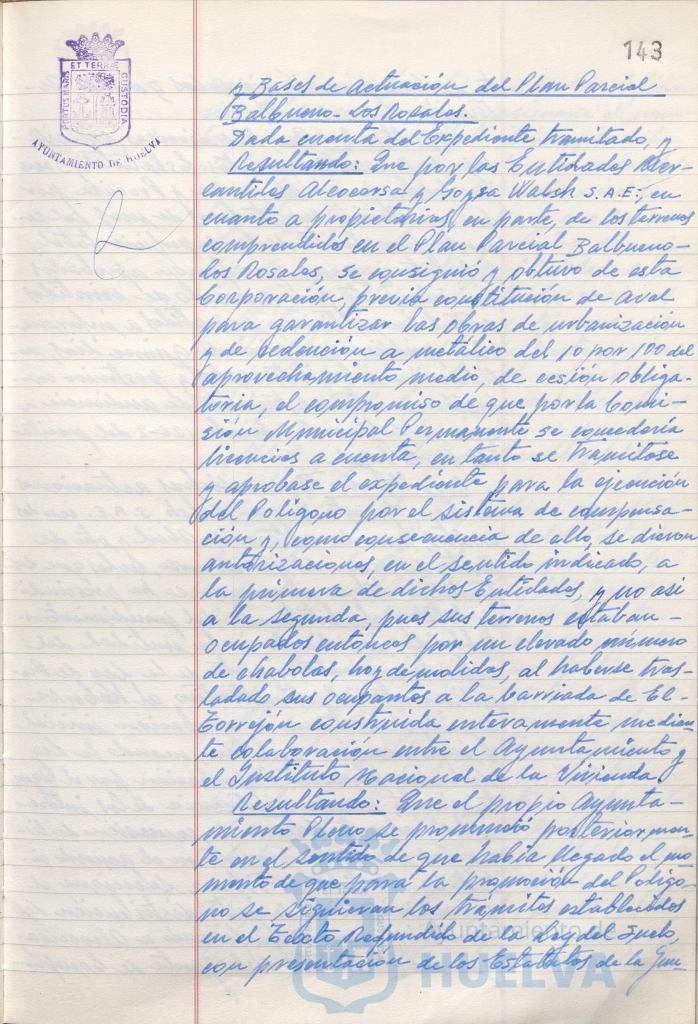 143
ET TERRE
PORTUS MARIS
CUSTODIA
AYUNTAMIENTO DE HUELVA
y Bases de actuación del Plan Parcial
Balbueno-Los Rosales.
Dada cuenta del Expediente tramitado, y
Resultando: Que por las Entidades Mer-
cantiles Alcocorsa y Goysa Walsh S.A.E., en
cuanto a propietarias, en parte, de los terrenos
comprendidos en el Plan Parcial Balbueno-
Los Rosales, se consiguió y obtuvo de esta
Corporación, previa constitución de aval
para garantizar las obras de urbanización
y de redención a metálico del 10 por 100 del
aprovechamiento medio, de cesión obliga-
toria, el compromiso de que por la Comi-
sión Municipal Permanente se concedería
licencias a cuenta, en tanto se tramitose
y aprobase el expediente para la ejecución
del Polígono por el sistema de compensa-
ción y, como consecuencia de ello, se dieron
autorizaciones, en el sentido indicado, a
la primera de dichos Entidades, y no así
a la segunda, pues sus terrenos estaban-
ocupados entonces por un elevado número
de chabolas, hoy demolidas, al haberse tras-
ladado sus ocupantes a la barriada de El-
Torrejón construída enteramente median-
te colaboración entre el Ayuntamiento y
el Instituto Nacional de la Vivienda
Resultando: Que el propio Ayunta-
miento Pleno, se pronunció posteriormen-
te en el sentido de que había llegado el mo-
mento de que para la promoción del Polígo-
no se siguieran los trámites establecidos
en el Texto Refundido de la Ley del Suelo,
con presentación de los Estatutos de la Jun-
Ayuntamiento de
HUELVA